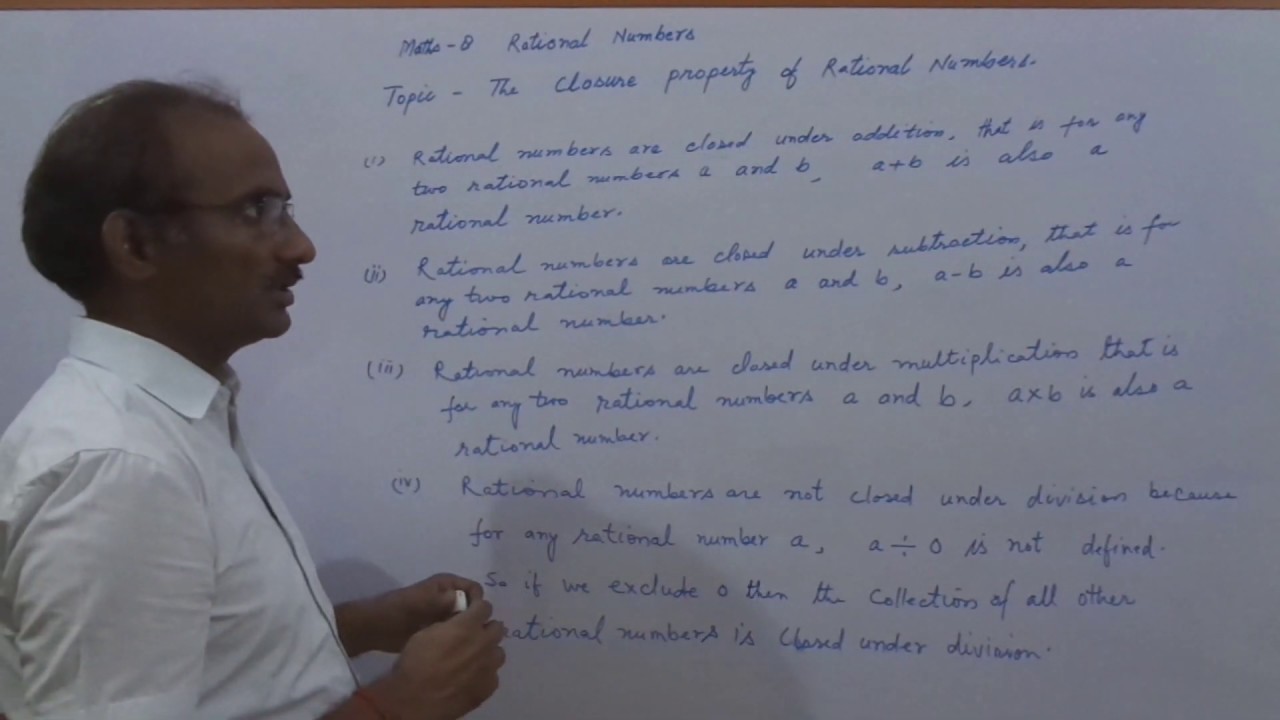 Maths-8 Rational Numbers
Topic - The Closure property of Rational Numbers.
(i) Rational numbers are closed under addition, that is for any
two rational numbers a and b, a+b is also a
rational number.
(ii) Rational numbers are closed under subtraction, that is for
any two rational numbers a and b, a-b is also a
rational number.
(iii) Rational numbers are closed under multiplication that is
for any two rational numbers a and b, a×b is also a
rational number.
(iv) Rational numbers are not closed under division because
for any rational number a, a ÷ 0 is not defined.
So if we exclude 0 then the collection of all other
rational numbers is closed under division.